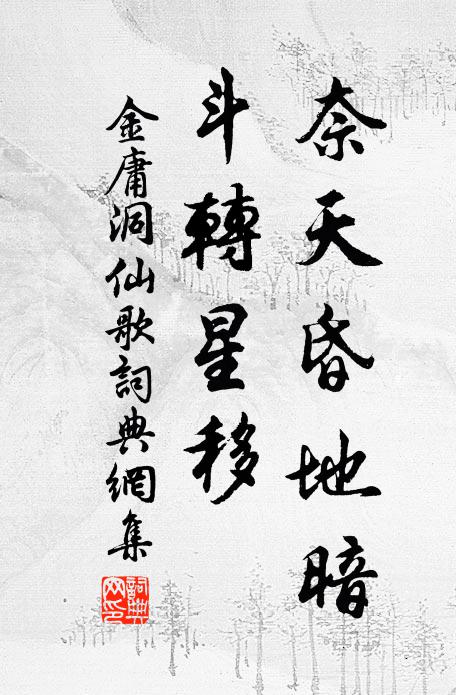 奈天昏地暗
斗轉星移
金庸洞仙歌詞典網集
詞典网印